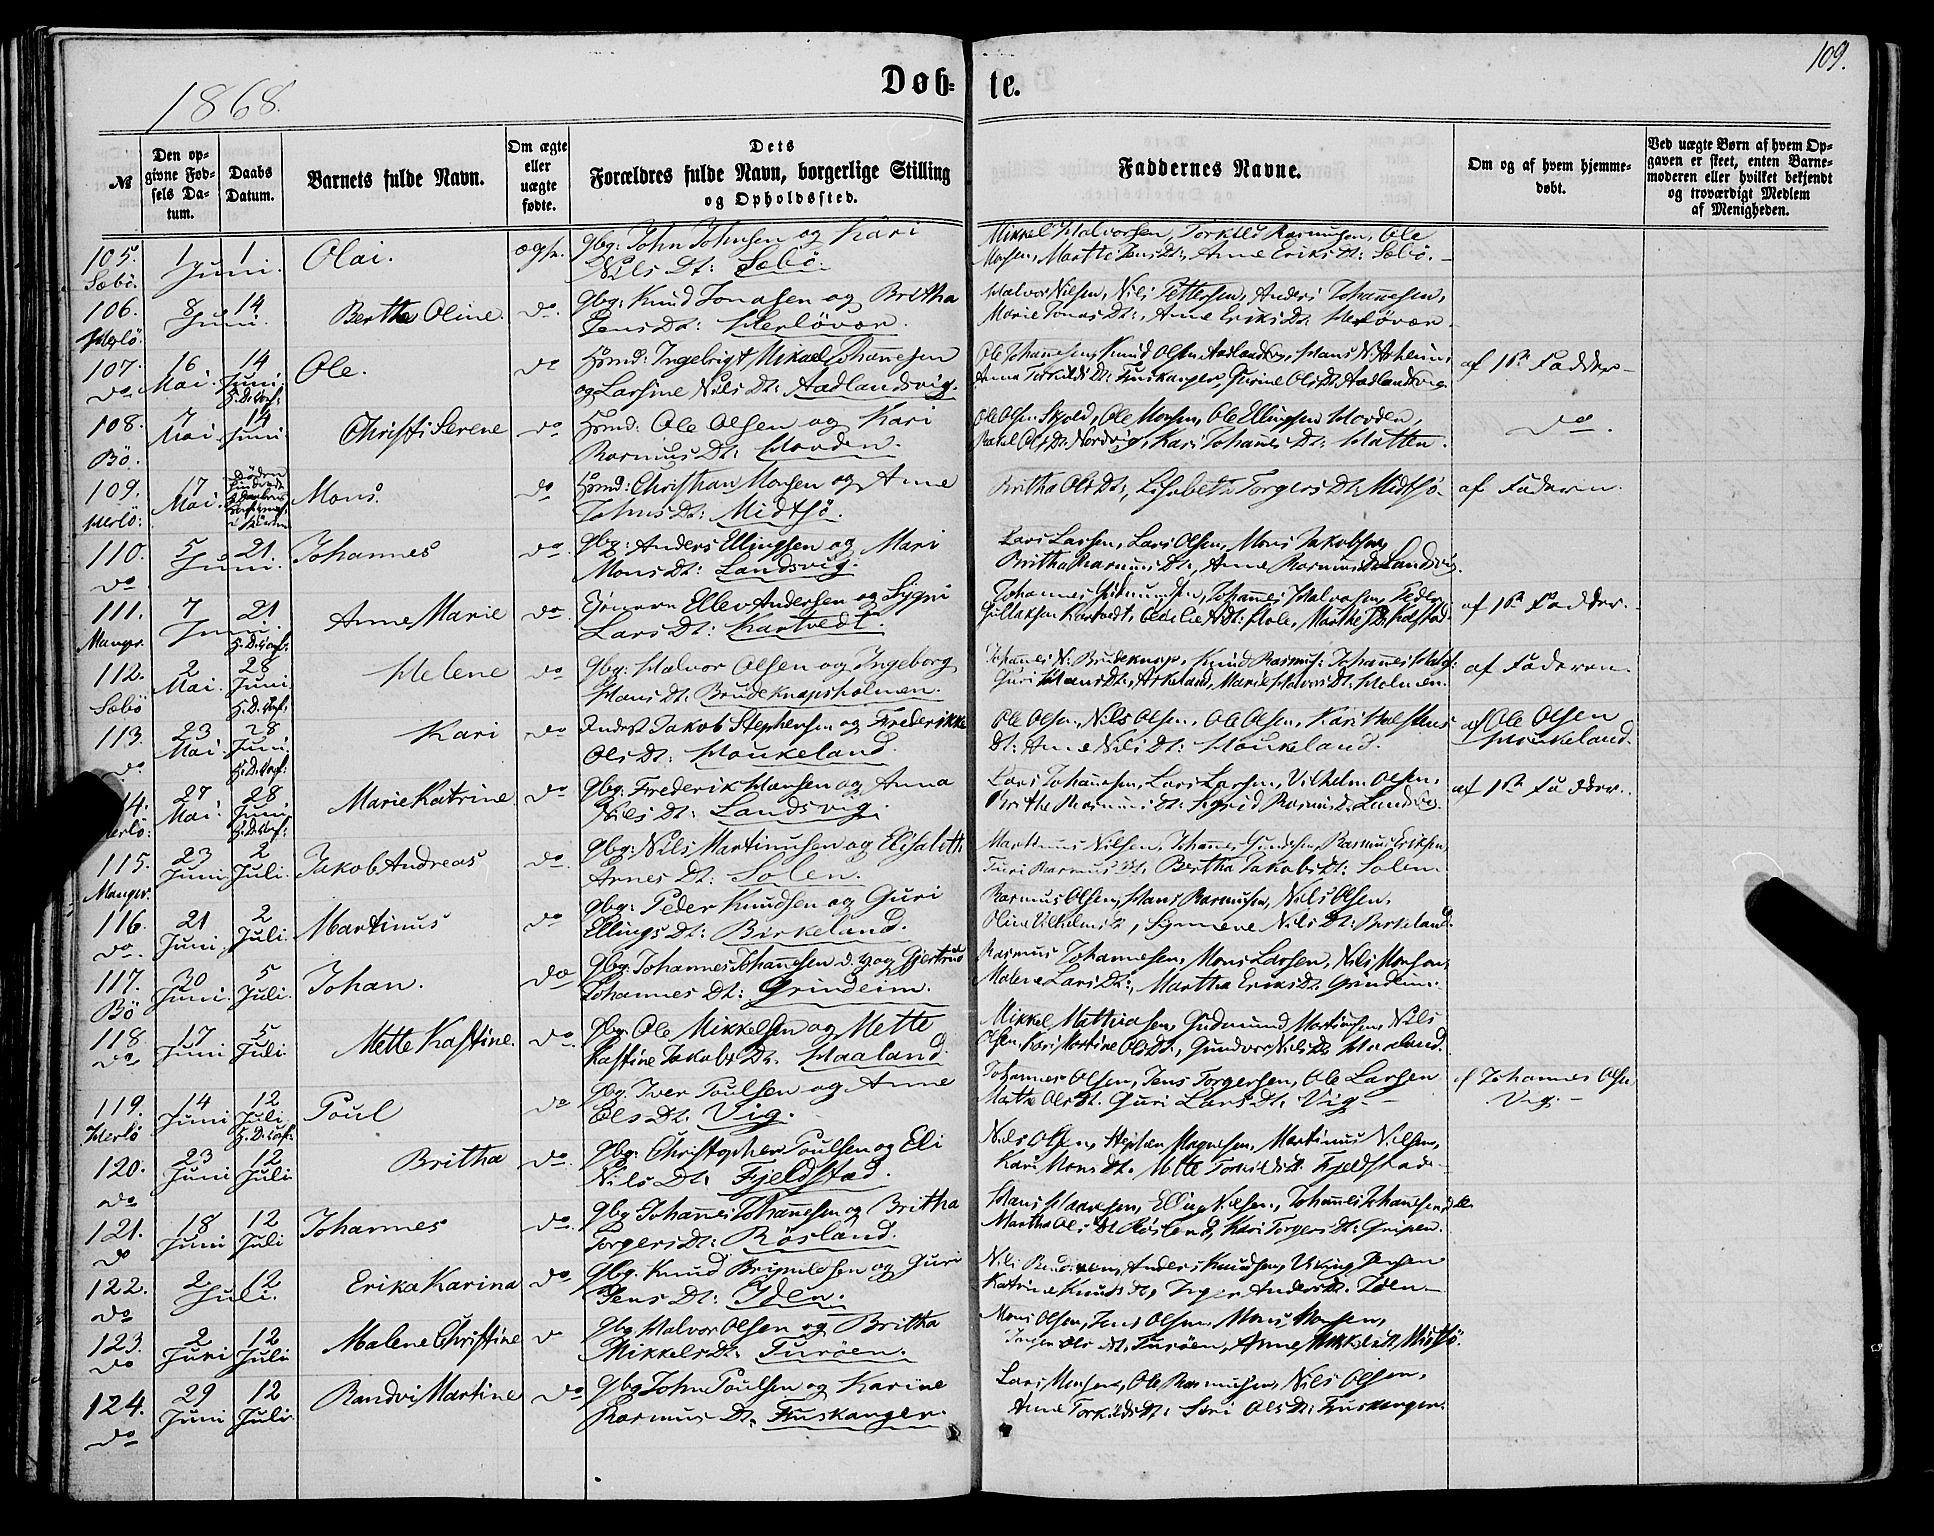 109.
1868.
Døb- te.
№
Den opgivne Fødsels Datum.
Daabs Datum.
Barnets fulde Navn.
Om ægte eller uægte fødte.
Dets Forældres fulde Navn, borgerlige Stilling og Opholdssted.
Faddernes Navne.
Om og af hvem hjemmedøbt.
Ved uægte Børn af hvem Opgaven er skeet, enten Barnemoderen eller hvilket bekjendt og troværdigt Medlem af Menigheden.
105. 1 1 Olai. ægte. Gbg: John Johnsen og Kari Mikkel Halvorsen, Torkild Rasmusen, Ole
Sæbö. Juni. Nils Dt: Sæbö. Monsen, Marthe Jens Dt:, Anne Eriks Dt: Sæbö.
106. 8 14 Bertha Oline. do. Gbg: Knud Jonasen og Britha Halvor Nilsen, Nils Pettersen, Anders Johannesen,
Herlö. Juni. Jens Dt: Herlövær. Marie Jonas Dt:, Anne Eriks Dt: Herlövær.
107. 16 14 Ole. do Hsmd: Ingebrigt Mikael Johannesen Ole Johannesen, Knud Olsen Aadlandsvig, Hans N. Askeim, af 1ste Fadder
do Mai. Juni og Larsine Nils Dt: Aadlandsvig. Anna Torkilds Dt: Fuskanger, Gurine Ols Dt Aadlandsvig
108. 7 14 Christi Serene do Hsmd: Ole Olsen og Kari Ole Olsen Skjold, Ole Monsen, Ole Ellingsen Hovden, do.
Bö. Mai Juni Rasmus Dt: Hovden. Rakel Ols Dt. Nordvig, Kari Johannes Dt: Hatten.
109. 17 Mons. do Hsmd: Christian Monsen og Anne Britha Ols Dt:, Lisabeth Torgers Dt: Midtsö. af Faderen.
Herlö: Mai. Johns Dt: Midtsö.
110. 5 21. Johannes do. Gbg: Anders Ellingsen og Mari Lars Larsen, Lars Olsen, Mons Jakobsen,
do Juni. Mons Dt: Landsvig. Britha Rasmus Dt:, Anne Rasmus Dt Landsvig.
111. 7 21. Anne Marie do Ellev Andersen og Sygni Johannes Halvorsen, Peder af 1ste Fadder.
Manger. Juni. Lars Dt: Kartvedt. Gullaksen Kartvedt,
112. 2 28 Helene do Gbg: Halvor Olsen og Ingeborg Johannes N. Brudeknap, Knud Rasmus: Johannes Halv: af Faderen.
Sæbö Mai. Juni Hans Dt: Brudeknapsholmen. Guri Hans Dt:, Askeland, Marie Halvors Dt: Holmen.
113. 23 28 Kari do Inderst Jakob Stephensen og Frederikke Ole Olsen, Nils Olsen, Ole Olsen, Kari Halstens af Ole Olsen
do. Mai. Juni Ols Dt: Houkeland Dt: Anne Nils Dt: Houkeland. Houkeland.
114. 27 28 Marie Katrine do Gbg. Frederik Hansen og Anna Lars Johannesen, Lars Larsen, Vilhelm Olsen, af 1ste Fadder.
Herlö: Mai. Juni Nils Dt: Landsvig. Brithe Rasmus Dt: Sigrid Rasmus Dt. Landsvig.
115. 23 2 Jakob Andreas do. Gbg: Nils Martinusen og Elisabeth Martinus Nilsen, Johannes Gundersen, Rasmus Eriksen,
Manger. Juni Juli. Arnes Dt: Solem. Turi Rasmus Dt. Bertha Jakobs Dt: Solem.
116. 21 2 Martinus do Gbg: Peder Knudsen og Guri Rasmus Olsen, Hans Rasmusen, Nils Olsen,
do. Juni. Juli. Ellings Dt: Birkeland. Synneve Nils Dt: Birkeland.
117. 30 5 Johan. do Gbg. Johannes Johannesen d. y. og Gjertrud Rasmus Johannesen, Mons Larsen, Nils Monsen,
Bö Juni. Juli. Johannes Dt: Grindeim. Malene Lars Dt:, Martha Eriks Dt. Grindeim.
118. 17 5 Mette Kastine. do. Gbg. Ole Mikkelsen og Mette Mikkel Mathiasen, Gudmund Martinusen, Nils
do. Juni Juli Kastine Jakobs Dt. Haaland. Olsen, Kari Martine Ols Dt., Gundvor Nils Dt Haaland.
119. 14 12 Poul do Gbg. Iver Poulsen og Anne Johannes Olsen, Jens Torgersen, Ole Larsen af Johannes Olsen
Herlö Juni Juli Ols Dt: Vig. Marthe Ols Dt. Guri Lars Dt. Vig Vig.
120. 23 12 Britha do. Gbg: Christopher Poulsen og Eli Nils Olsen, Stephen Magnesen, Martinus Nilsen,
do Juni Juli Nils Dt. Fjeldstad. Kari Mons Dt. Mette Torkilds Dt. Fjeldstad
121. 18 12 Johannes do. Gbg Johannes Johannesen og Britha Hans Hansen, Elling Nilsen, Johannes Johannesen
do Juni Juli Torgers Dt: Rösland. Martha Ols Dt Rösland, Kari Torgers Dt:
122. 2 12 Erika Karina do Gbg. Knud Brynildsen og Guri Anders Knudsen, Jensen
do Juli. Jens Dt: Iden. Katrine Knuds Dt, Inger Anders Dt. Iden
123. 2 12 Malene Christine do Gbg Halvor Olsen og Britha Mons Olsen, Jens Olsen, Mons Monsen,
do Juni Juli Mikkels Dt. Turöen. Inger Ols Dt. Turöen, Anne Mikkels Dt. Midtsö.
124. 29 12 Randvi Martine do Gbg John Poulsen og Karine Lars Monsen, Ole Rasmusen, Nils Olsen,
do Juni Juli Rasmus Dt. Fuskanger. Anne Torkilds Dt: Siri Ols Dt: Fuskanger.